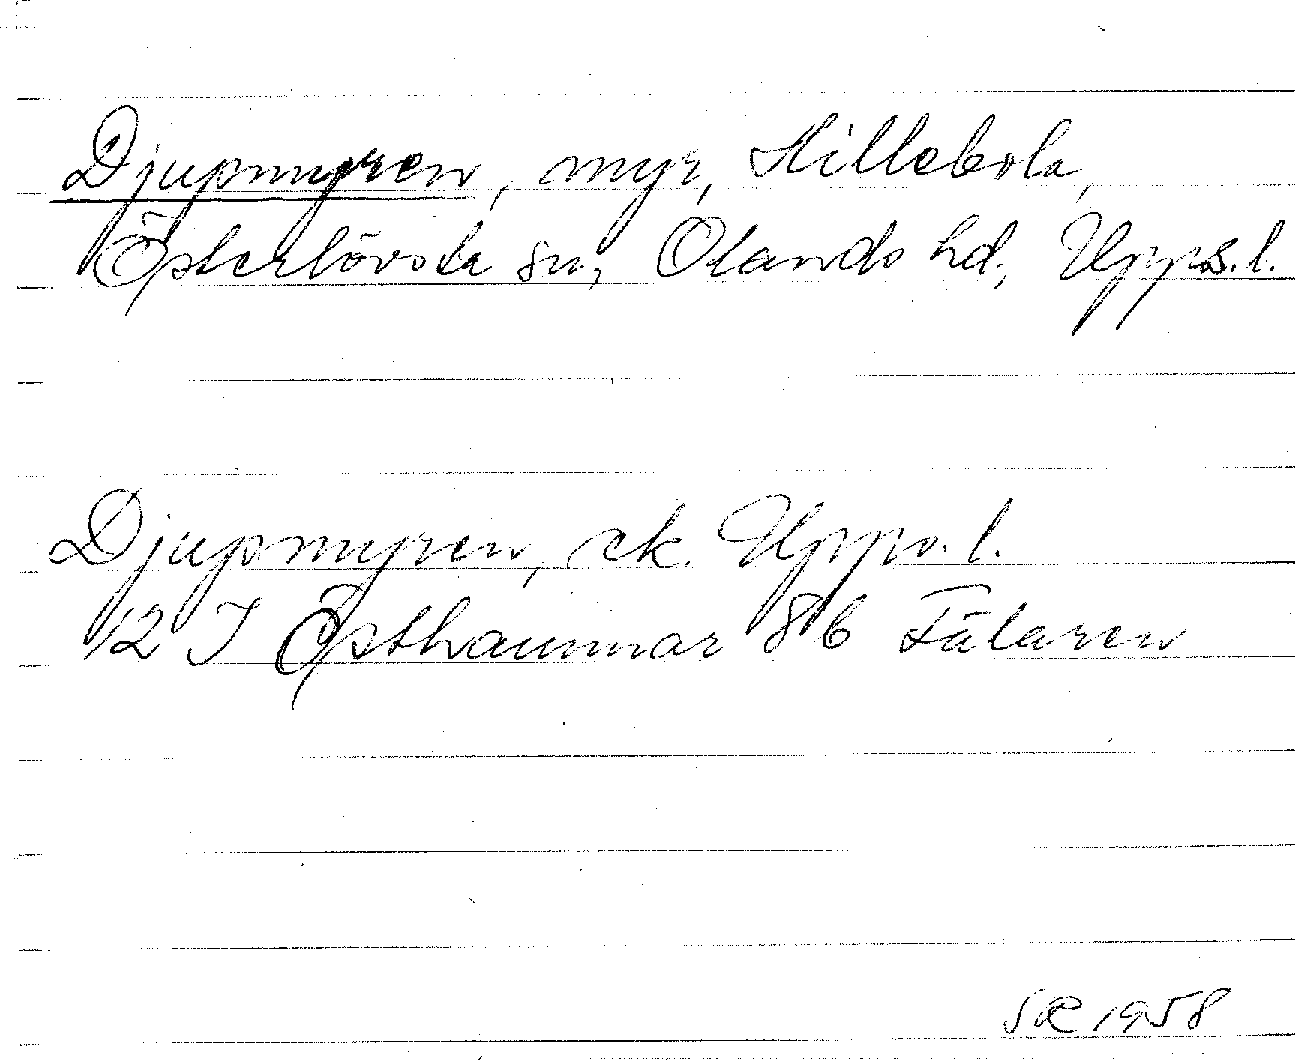 Djupmyren, myr, Hillebola,
Österlövsta sn, Olands hd, Upps. l.
Djupmyren, ek. Upps. l.
12 I Östhammar 8b Fälaren
SR 1958